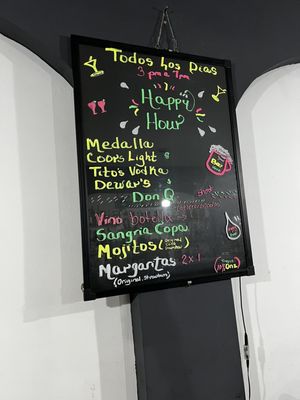 Todos Los Dias
3 pm a 7pm
Happy
Hour
Medalla
Coors Light $
Tito's Vodka
Dewar's $
Don Q
shot
Vino botella
Sangria Copa
Mojitos (
Margaritas 2x1
(Original, Strawberry)